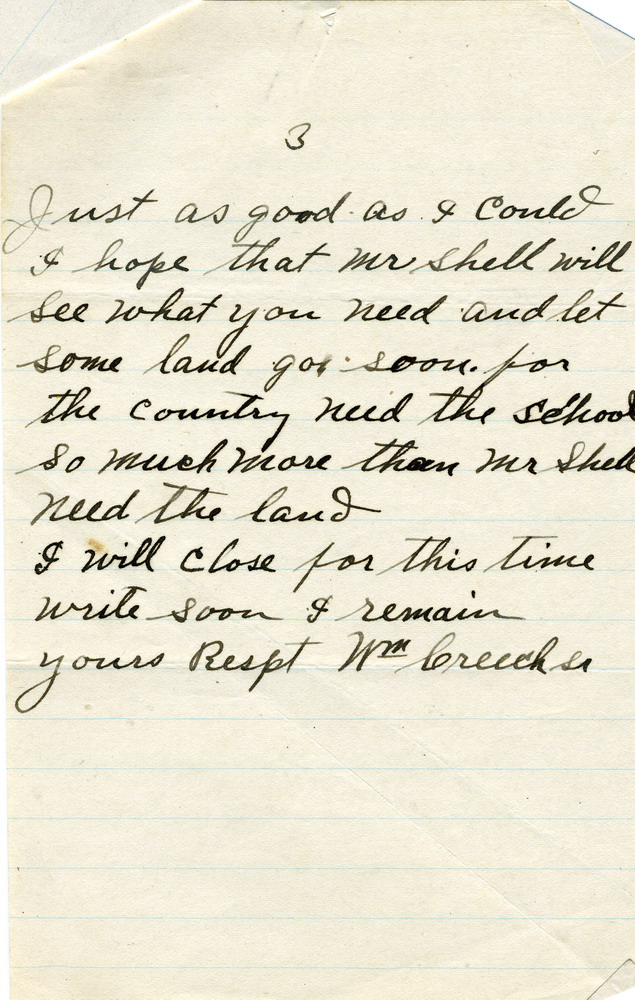 3
Just as good as I Could
I hope that Mr Shell will
see what you need and let
some land go soon. for
the country need the school
so much more than Mr Shell
need the land
I will close for this time
write soon I remain
yours Respt Wm Creech sr